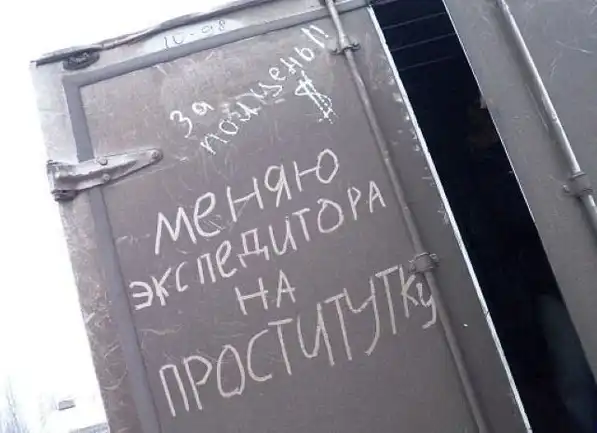 10-98
За
пол цены!!
$
Меняю
экспедитора
на
проститутку